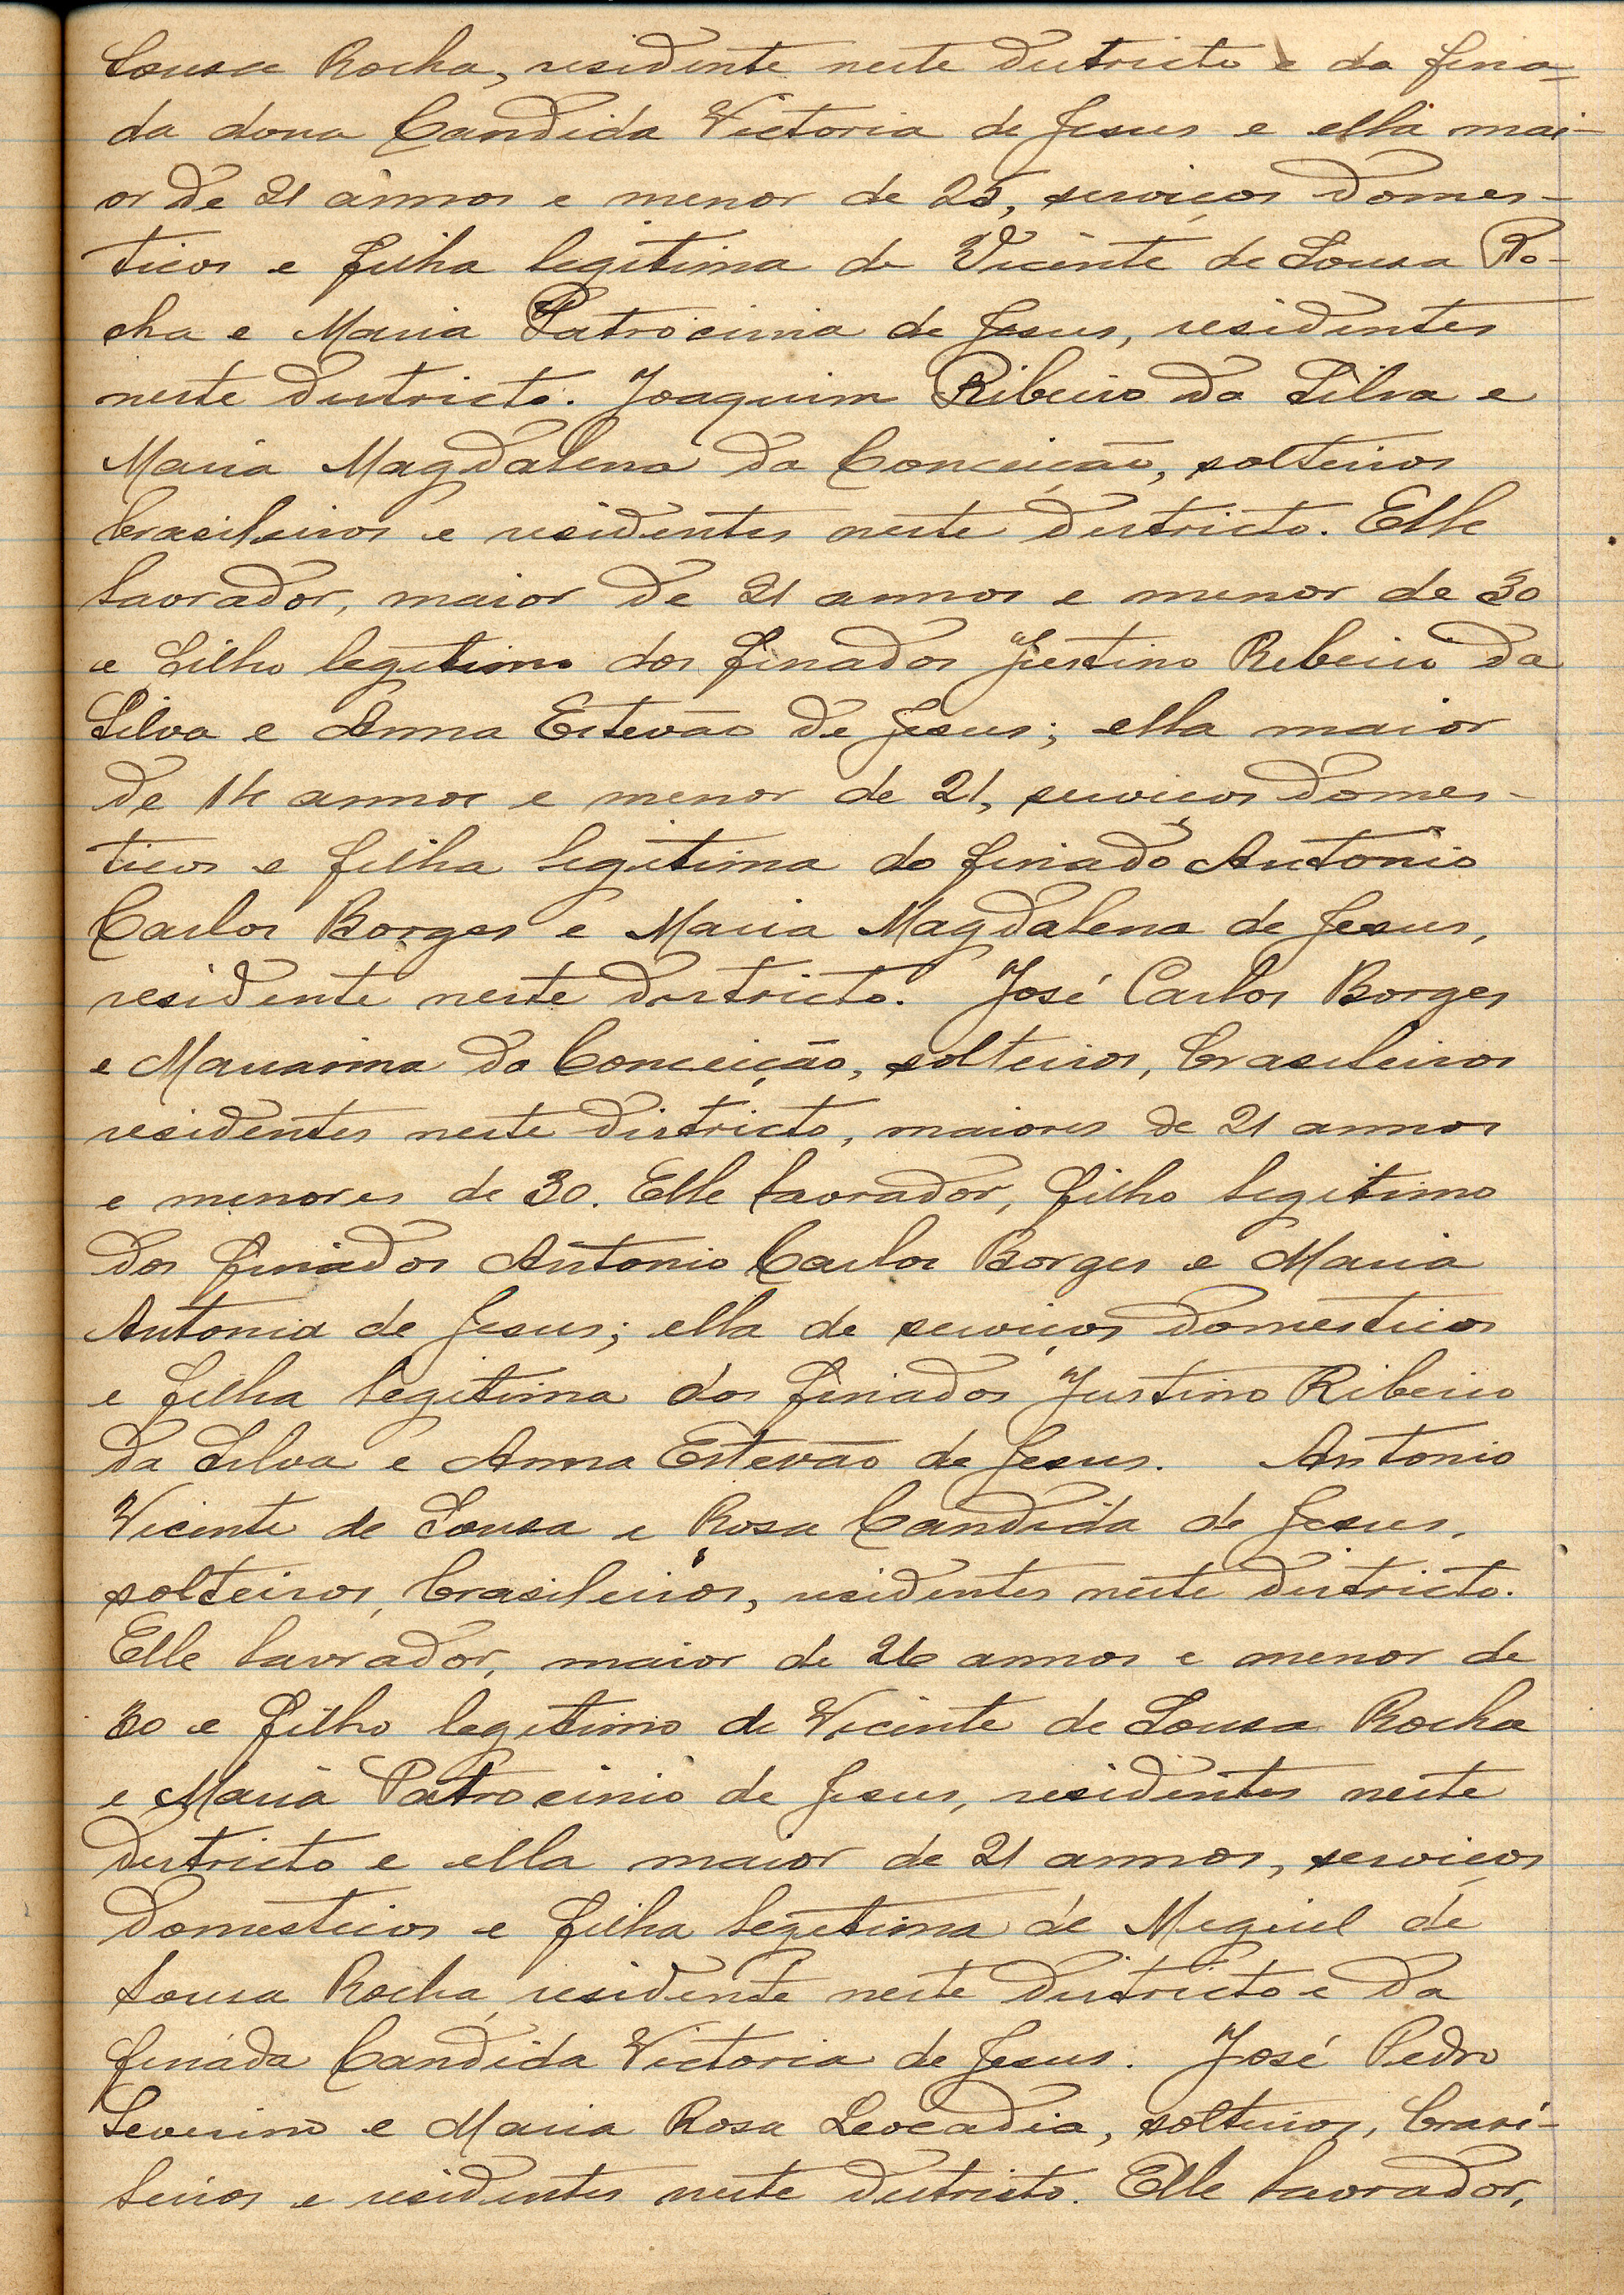 Sousa Rocha, residente neste districto e da fina-
da dona Candida Victoria de Jesus e ella mai-
or de 21 annos e menor de 25, serviços domes-
ticos e filha legitima de Vicente de Sousa Ro-
cha e Maria Patrocinia de Jesus, residentes
neste districto. Joaquim Ribeiro da Silva e
Maria Magdalena da Conceição, solteiros
brasileiros e residentes neste districto. Elle
lavrador, maior de 21 annos e menor de 30
e filho legitimo dos finados Justino Ribeiro da
Silva e Anna Estevão de Jesus; ella maior
de 14 annos e menor de 21, serviços domes-
ticos e filha legitima do finado Antonio
Carlos Borges e Maria Magdalena de Jesus,
residente neste districto. José Carlos Borges
e Marianna da Conceição, solteiros, brasileiros
residentes neste districto, maiores de 21 annos
e menores de 30. Elle lavrador, filho legitimo
dos finados Antonio Carlos Borges e Maria
Antonia de Jesus; ella de serviços domesticos
e filha legitima dos finados Justino Ribeiro
da Silva e Anna Estevão de Jesus. Antonio
Vicente de Sousa e Rosa Candida de Jesus,
solteiros, brasileiros, residentes neste districto.
Elle lavrador, maior de 26 annos e menor de
30 e filho legitimo de Vicente de Sousa Rocha
e Maria Patrocinio de Jesus, residentes neste
districto e ella maior de 21 annos, serviços
domesticos e filha legitima de Miguel de
Sousa Rocha, residente neste districto e da
finada Candida Victoria de Jesus. José Pedro
Severino e Maria Rosa Leocadia, solteiros, brasi-
leiros e residentes neste districto. Elle lavrador,